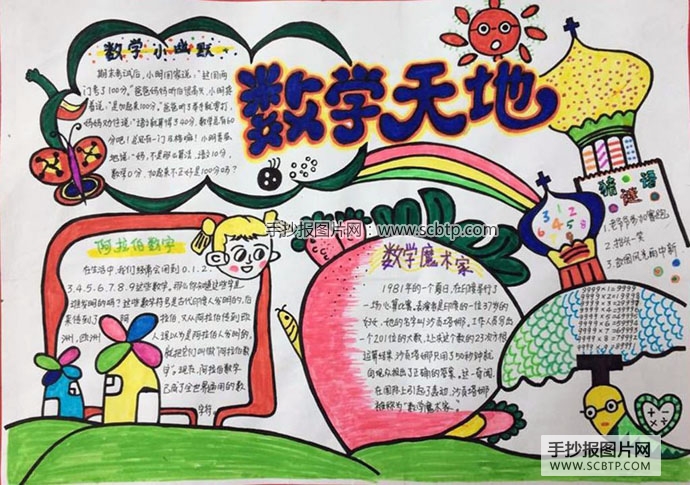 数学天地
数学小幽默
期末考试后，小明回家说，“这回两
门考了100分。”爸爸妈妈听后很高兴，小明接
着说：“是加起来100分。”爸爸听了举手就要打，
地说：“妈，不是那么算法，语文10分，
数学0分，加起来不正好是100分吗？
猜谜语
1.老爷爷参加赛跑
2.抬头一笑
阿拉伯数字
在生活中，我们经常会用到0.1.2.
3.4.5.6.7.8.9这些数字。那么你知道这些数字是
谁发明的吗？这些数字符号是古代印度人发明的，后
来传到了阿拉伯，又从阿拉伯传到欧
洲，欧洲人误以为是阿拉伯人发明的，
就把它们叫做“阿拉伯数
字”。现在，阿拉伯数字
已成了全世界通用的数
字符。
数学魔术家
1981年的一个夏日，在印度举行了
一场心算比赛。表演者是印度的一位37岁的
妇女，她的名字叫沙贡塔娜。工作人员写出
一个201位的大数，让求这个数的23次方根
运算结果，沙贡塔娜只用了50秒钟就
向观众报出了正确的答案。这一奇闻，
在国际上引起了轰动，沙贡塔娜
被称为“数学魔术家”。
3 1 2
4 5 8
6
手抄报图片网：www.scbtp.com
手抄报图片网
WWW.SCBTP.COM